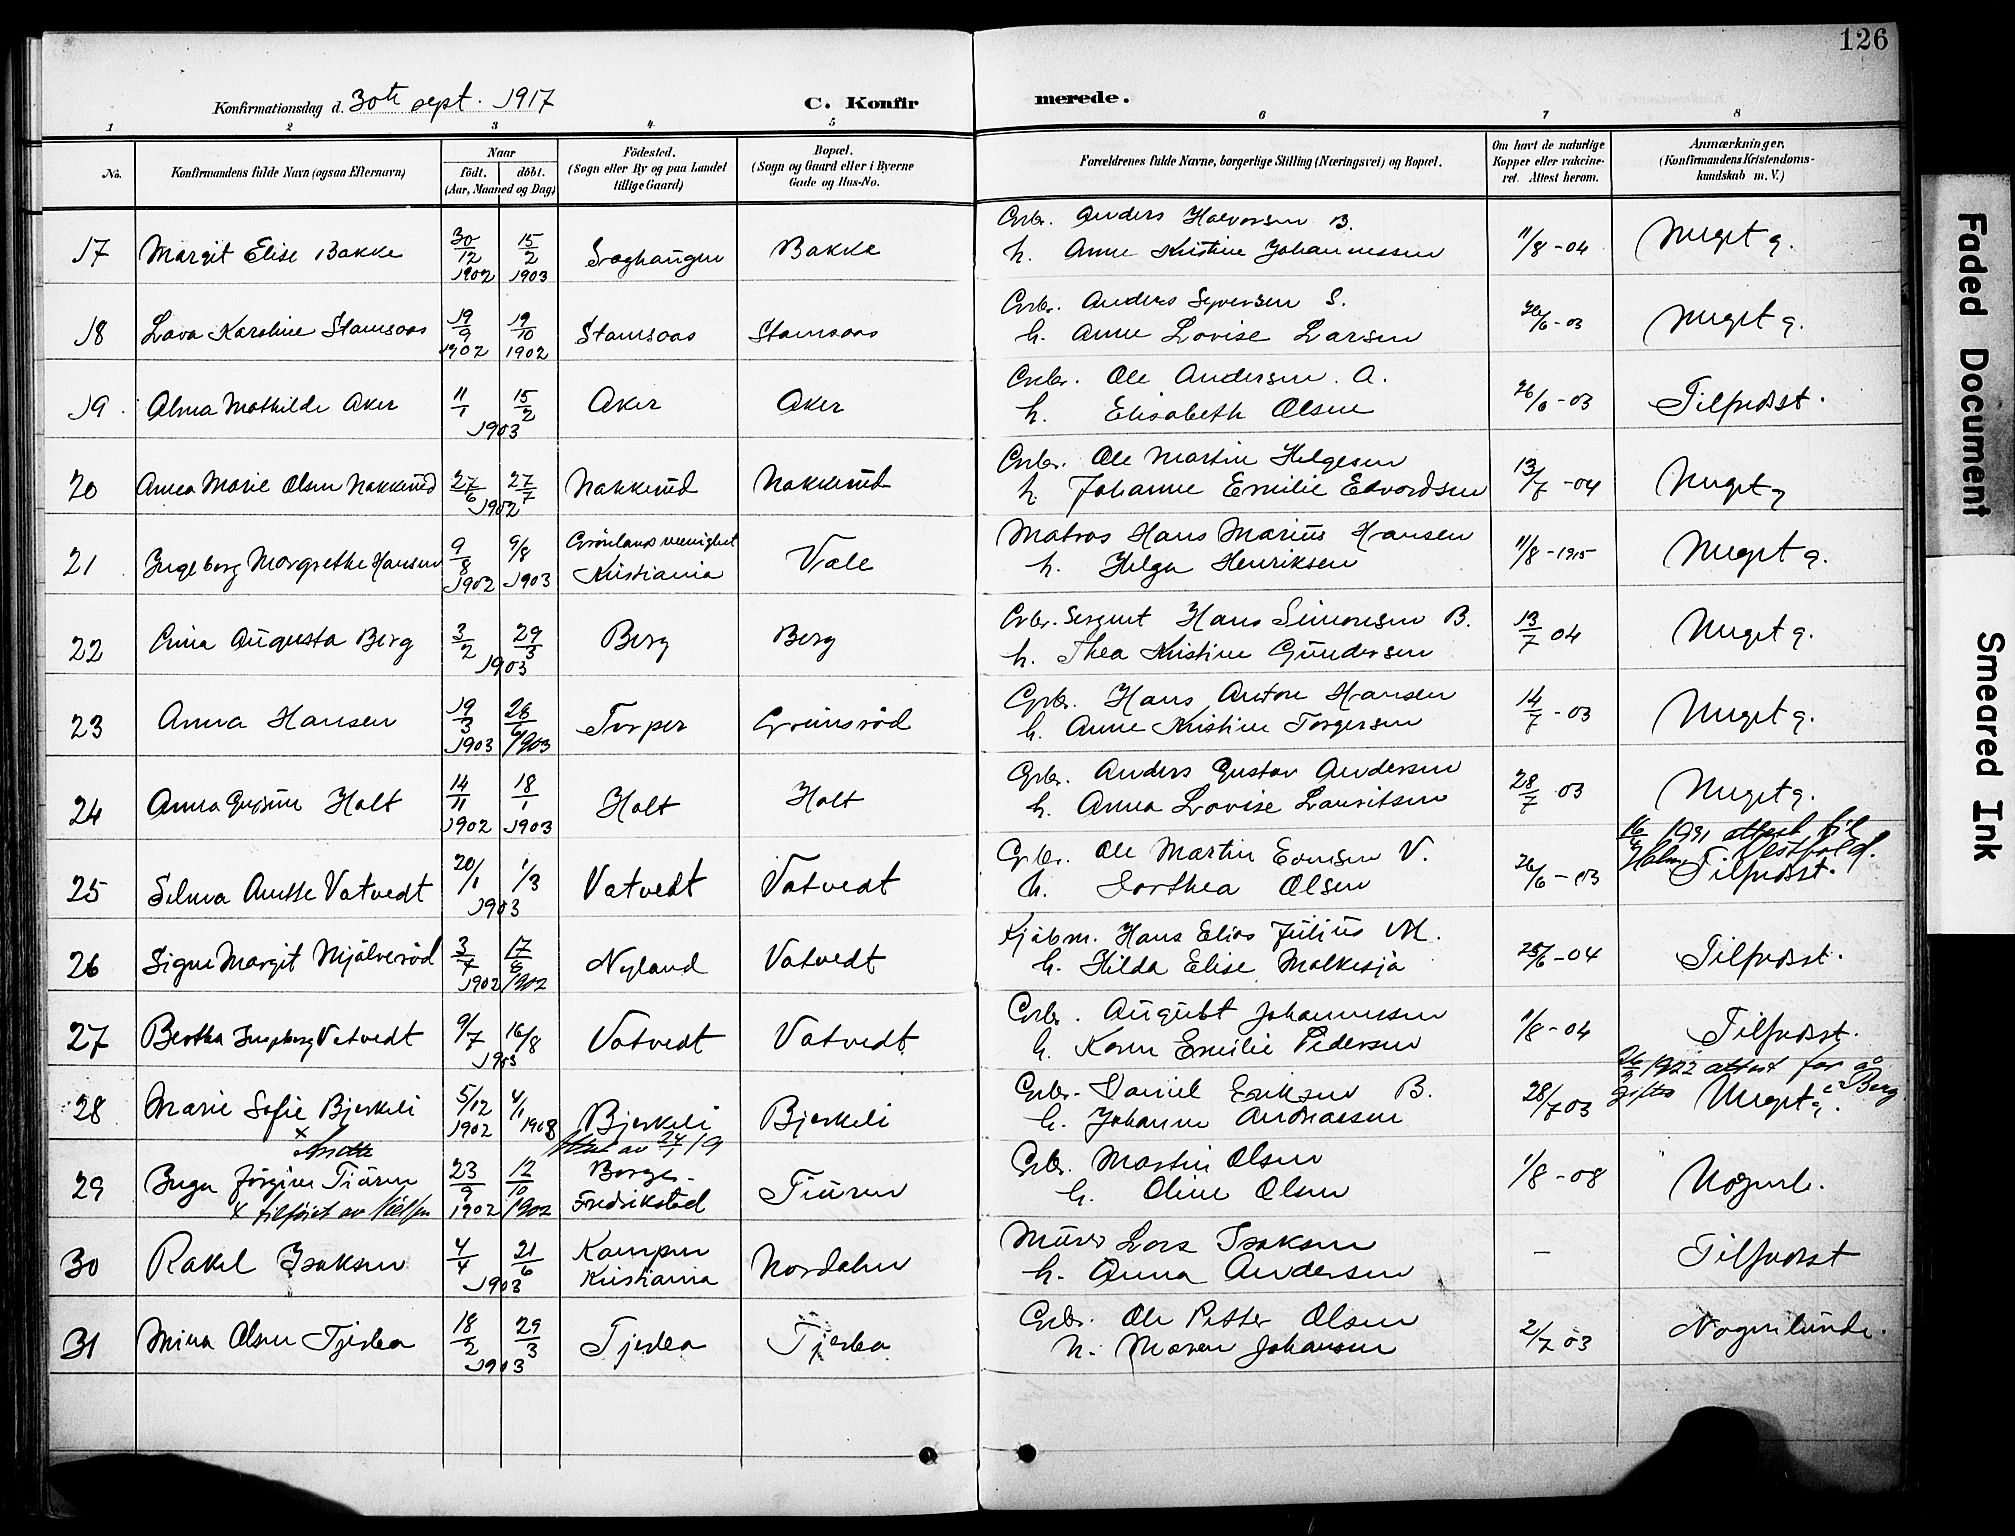 126
Konfirmationsdag d. 30te sept. 1917
C. Konfirmerede.
1 2 3 4 5 6 7 8
No.
Konfirmandens fulde Navn (ogsaa Efternavn)
Naar
født. døbt.
(Aar, Maaned og Dag)
Fødested.
(Sogn eller By og paa Landet
tillige Gaard)
Bopæl.
(Sogn og Gaard eller i Byerne
Gade og Hus-No.
Forældrenes fulde Navne, borgerlige Stilling (Næringsvei) og Bopæl.
Om havt de naturlige
Kopper eller vakcine-
ret. Attest herom.
Anmærkninger.
(Konfirmandens Kristendoms-
kundskab m. V.)
17 Margit Elise Bakke 30/12 1902 15/2 1903 Bakke Anders Halvorsen B.
h. Anne Kristine Johannessen 11/8-04 Meget g.
18 Karoline Stamsaas 19/9 1902 19/10 1902 Stamsaas Stamsaas Anders Syversen S.
h. Anne Lovise Larsen 26/6-03 Meget g.
19 Alma Mathilde Aker 11/1 15/2 1903 Aker Aker Ole Andersen A.
h. Elisabeth Olsen 26/6-03 Tilfredsst.
20 Anna Marie Olsen Nakkerud 27/6 27/7 1902 Nakkerud Nakkerud Ole Martin Helgesen
h. Johanne Emilie Edvardsen 13/7-04 Meget g
21 Ingeborg Margrethe Hansen 9/8 1902 9/8 1903 Grönlands menighet
Kristiania Vale Matros Hans Marius Hansen
h. Helga Henriksen 11/8-1915 Meget g.
22 Augusta Berg 3/2 29/3 1903 Berg Berg Sergent Hans Simonsen B.
h. Thea Kristine Gundersen 13/7 04 Meget g.
23 Anna Hansen 19/3 1903 28/6 1903 Torper Grimsröd Hans Anton Hansen
h. Anne Kristine Torgersen 14/7-03 Meget g.
24 Anna Holt 14/11 1902 18/1 1903 Holt Holt Anders Gustav Andersen
h. Anna Lovise Lauritsen 28/7 03 Meget g.
16/ 1931 attest til
Vestfold.
25 Selma Anette Vatvedt 20/1 1/3 1903 Vatvedt Vatvedt Ole Martin Evensen V.
h. Dorthea Olsen 26/6-03 Tilfredsst.
26 Signe Margit Mjälveröd 3/7 1902 17/8 1902 Nyland Vatvedt Kjøbm. Hans Elias Julius M.
h. Hilda Elise Molkesja 25/6-04 Tilfredsst.
27 Bertha Ingeborg Vatvedt 9/7 16/8 1903 Vatvedt Vatvedt August Johannessen
h. Karen Emilie Pedersen 1/8-04 Tilfredsst.
1922 attest for å
giftes i Berg
28 Marie Sofie Bjerkeli 5/12 1902 4/1 1908 Bjerkeli Bjerkeli Daniel Eriksen B.
h. Johanne Andreassen 28/7 03 Meget g.
29 Inga Jörgine Tiuren 23/9 1902 12/10 1902 Borge
Fredrikstad Tiuren Martin Olsen
h. Oline Olsen 1/8-08 Nogenl.
x tilföiet av
30 Rakel Isaksen 4/4 21/6 1903 Kampen
Kristiania Nordalen Murer Lars Isaksen
h. Anna Andersen - Tilfredsst
31 Mina Olsen Tjerbo 18/2 29/3 1903 Tjerbo Tjerbo Ole Petter Olsen
h. Maren Johansen 2/7 03 Nogenlunde.
Faded Document
Smeared Ink